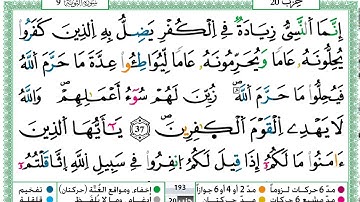 حزب 20 سورة التوبة 9
إِنَّمَا ٱلنَّسِىٓءُ زِيَادَةٌ فِى ٱلْكُفْرِ يُضَلُّ بِهِ ٱلَّذِينَ كَفَرُوا۟
يُحِلُّونَهُۥ عَامًا وَيُحَرِّمُونَهُۥ عَامًا لِّيُوَاطِـُٔوا۟ عِدَّةَ مَا حَرَّمَ ٱللَّهُ
فَيُحِلُّوا۟ مَا حَرَّمَ ٱللَّهُ زُيِّنَ لَهُمْ سُوٓءُ أَعْمَـٰلِهِمْ وَٱللَّهُ
لَا يَهْدِى ٱلْقَوْمَ ٱلْكَـٰفِرِينَ 37 يَـٰٓأَيُّهَا ٱلَّذِينَ
ءَامَنُوا۟ مَا لَكُمْ إِذَا قِيلَ لَكُمُ ٱنفِرُوا۟ فِى سَبِيلِ ٱللَّهِ ٱثَّاقَلْتُمْ
مدّ 6 حركات لزوماً مدّ 2 أو 4 أو 6 جوازاً 193 إخفاء، ومواقع الغُنَّة (حركتان) تفخيم
مدّ مشبع 6 حركات مدّ حركتان 20 إدغام، وما لا يُلفَظ قلقلة